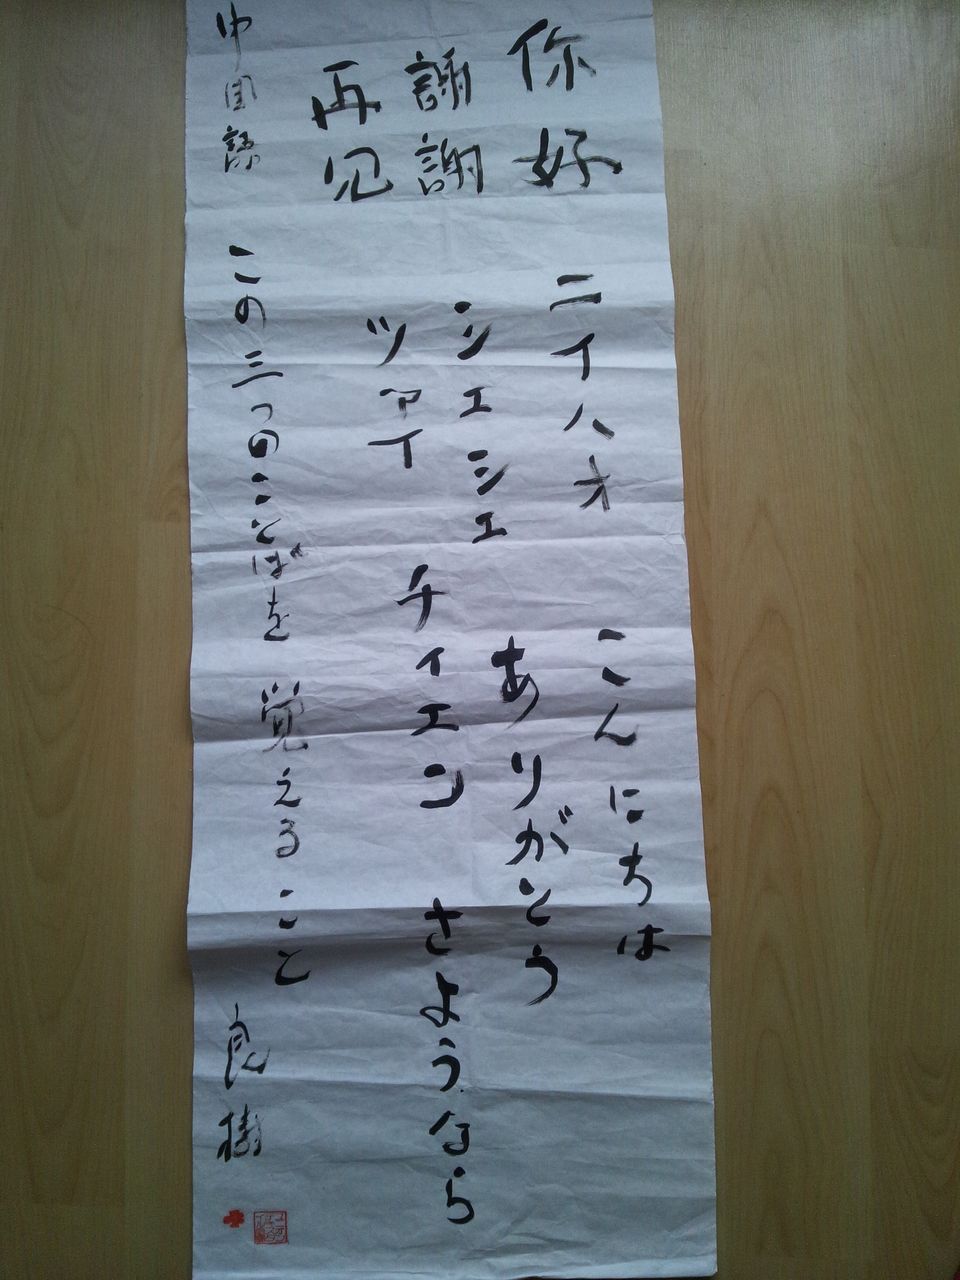 你好 ニイハオ こんにちは
謝謝 シェシェ ありがとう
再见 ツァイ チィエン さようなら
中国語 この三つのことばを 覚えること 良樹